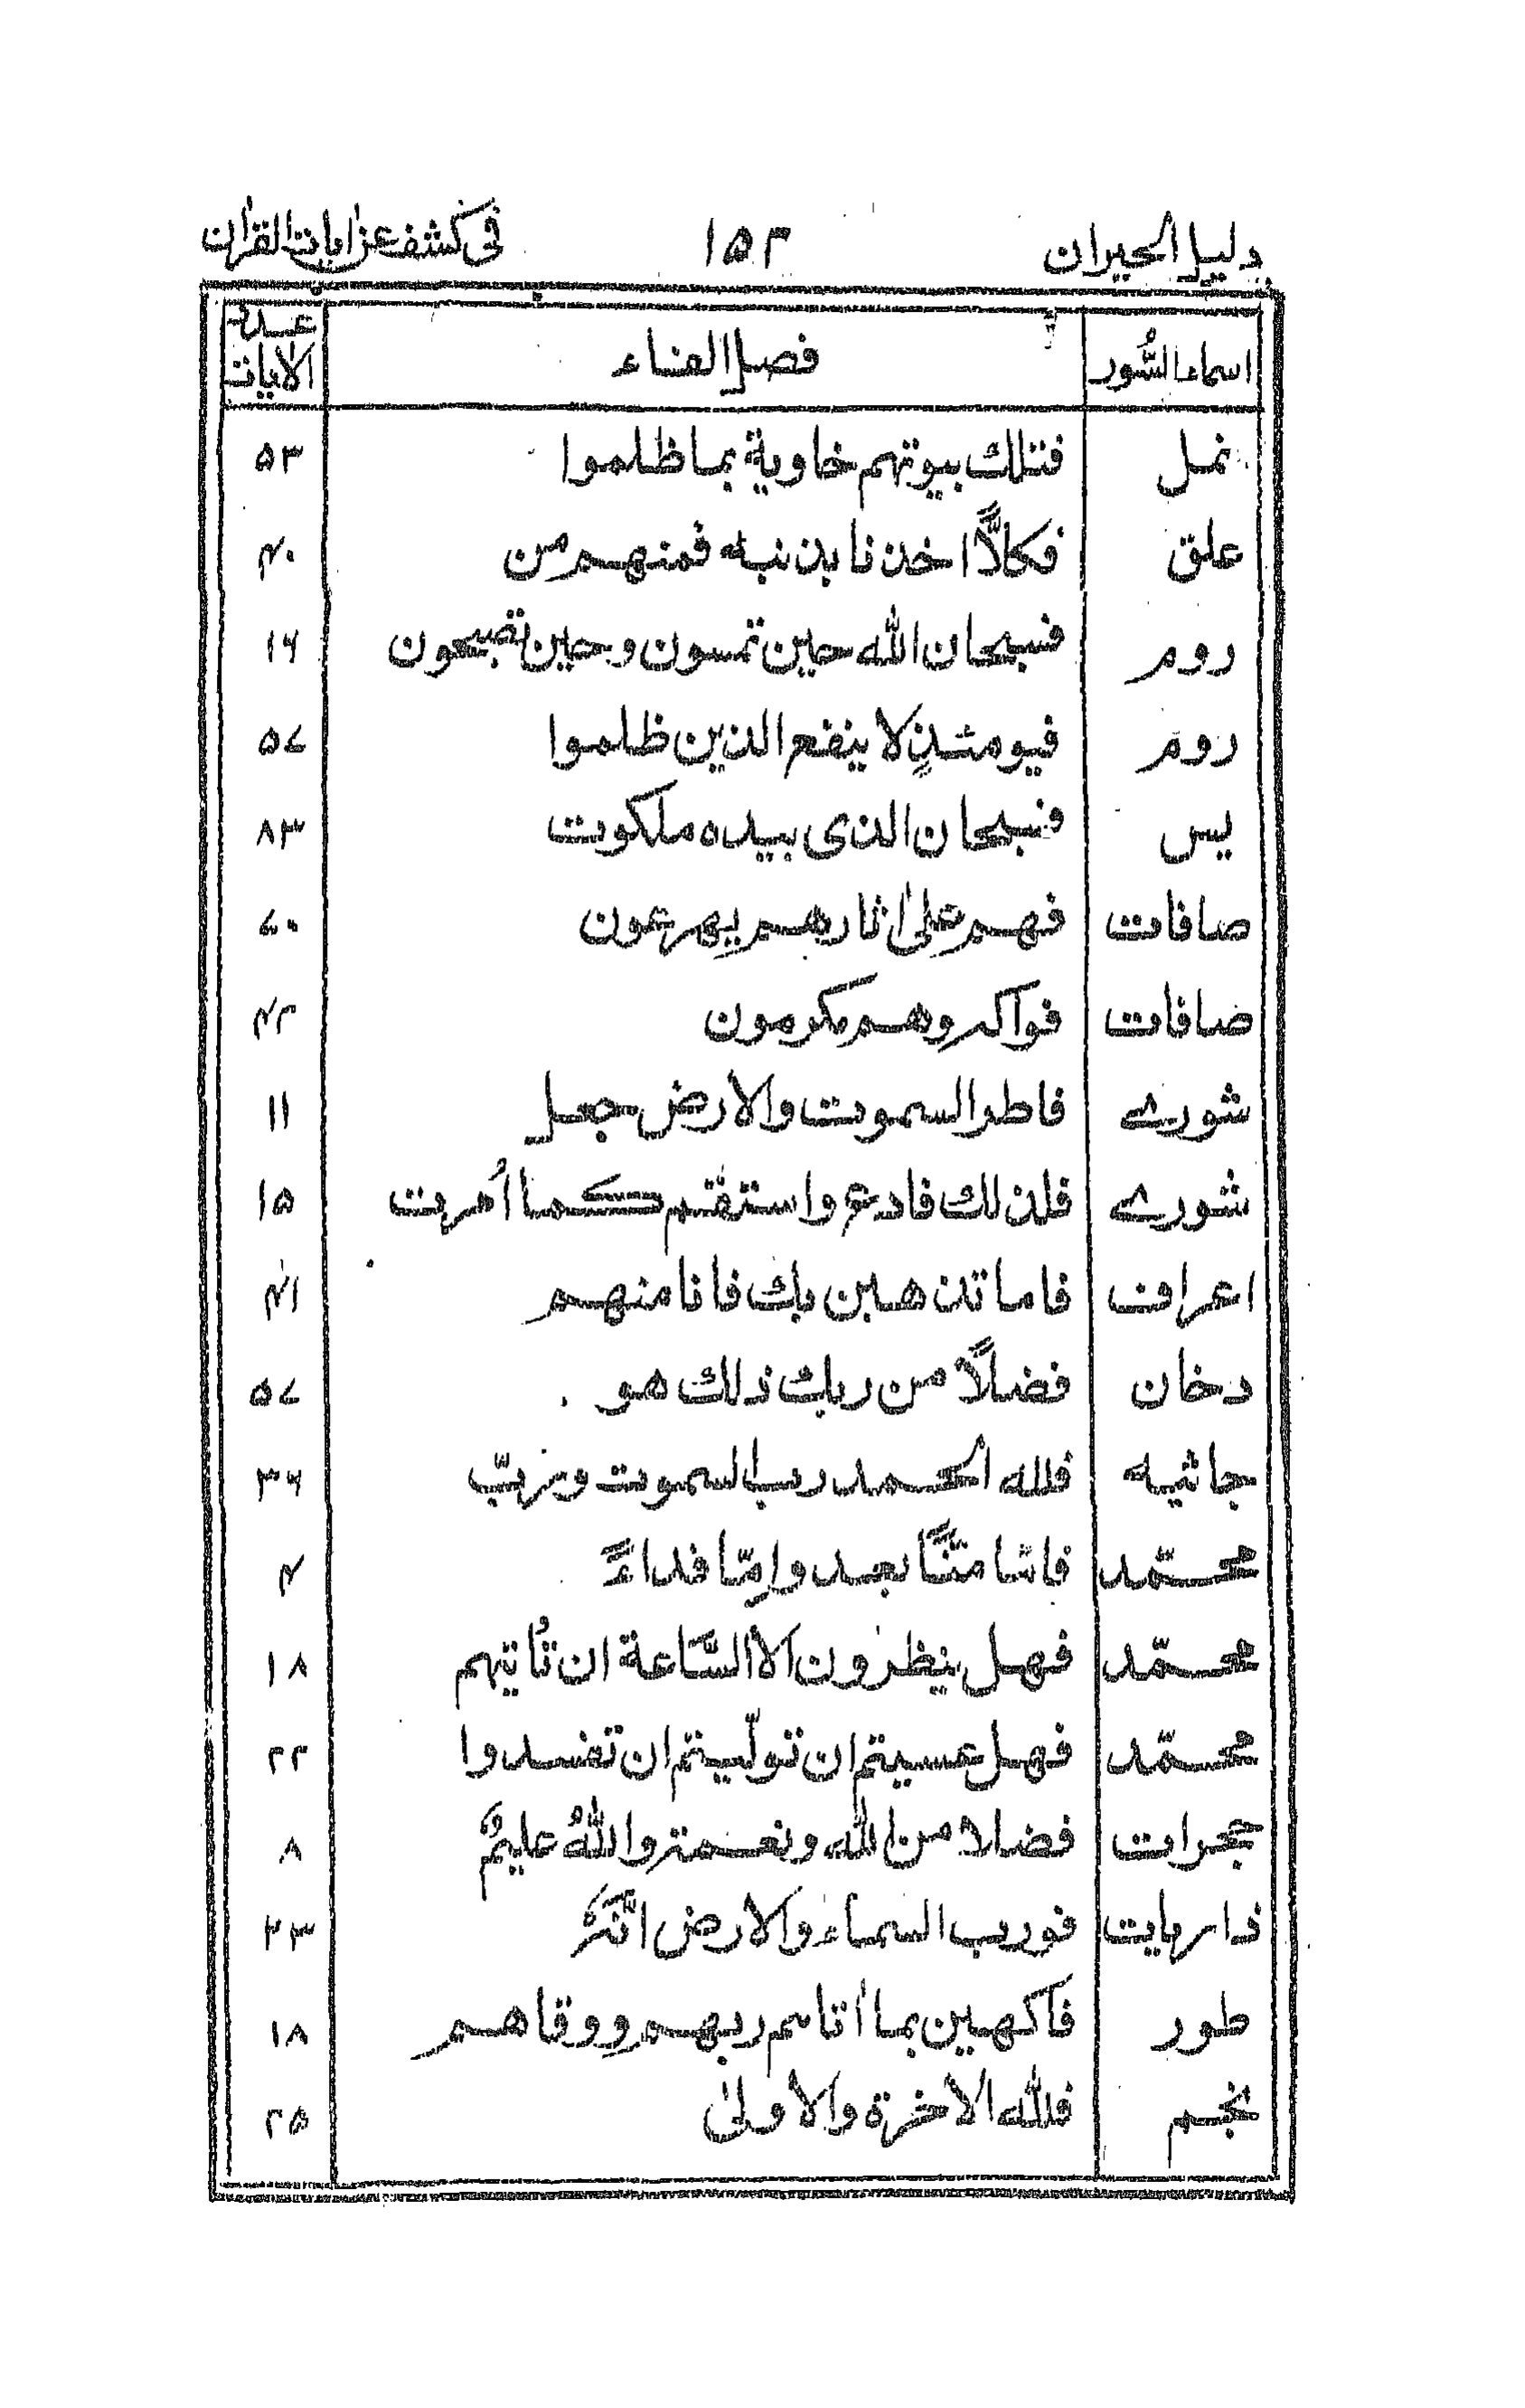 دليل الحيران ١٥٢ فى كشف عن اٰيات القراٰن
اسماء السُّور فصل الفاء عدد الايات
نمل فتلك بيوتهم خاوية بما ظلموا ۵۲
علق فكلاًّ اخذنا بذنبه فمنهم من ۴۰
روم فسبحان الله حين تمسون وحين تصبحون ۱۶
روم فيومئذٍ لا ينفع الذين ظلموا ۵۷
يس فسبحان الذى بيده ملكوت ۸۳
صافات فهم علىٰ اٰثارهم يهرعون ۷۰
صافات فواكه وهم مكرمون ۴۲
شورے فاطر السموت والارض جعل ۱۱
شورے فلذلك فادع واستقم كما اُمرت ۱۵
اعراف فاما تذهبن بك فانا منهم ۴۱
دخان فضلاً من ربك ذلك هو ۵۷
جاثيه فلله الحمد رب السموت وربّ ۳۶
محمّد فامّا منًّا بعد وامّا فداءً ۴
محمّد فهل ينظرون الا السَّاعة ان تأتيهم ۱۸
محمّد فهل عسيتم ان تولّيتم ان تفسدوا ۲۲
حجرات فضلا من الله ونعمة واللهُ عليمٌ ۸
ذاريات فورب السماء والارض انَّهٗ ۲۳
طور فاكهين بما اٰتاهم ربهم ووقاهم ۱۸
نجم فلله الاخرة والاولىٰ ۲۵